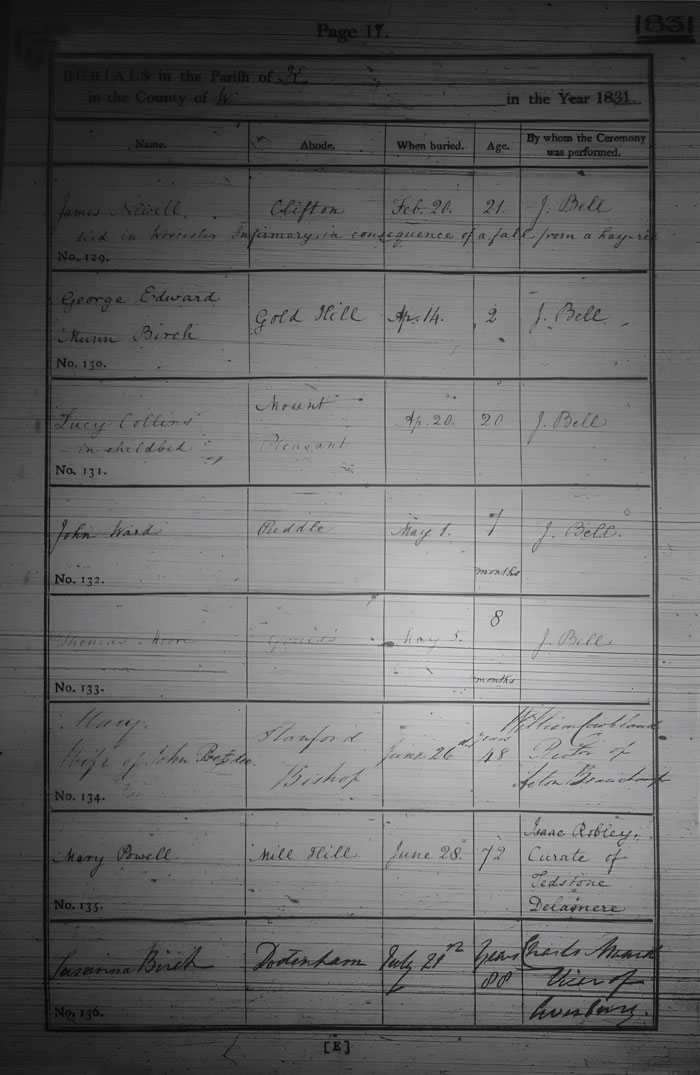 1831
Page 17.
BURIALS in the Parish of
in the County of W in the Year 1831.
Name. Abode. When buried. Age. By whom the Ceremony was performed.
James Newell Clifton Feb. 20. 21. J. Bell
died in Worcester Infirmary in consequence of a fall from a hay-ric
No. 129.
George Edward
Munn Birch Gold Hill Ap. 14. 2 J. Bell
No. 130.
Lucy Collins Mount Ap. 20. 20 J. Bell
in childbed Pleasant
No. 131.
John Ward Puddle May 1. 7 J. Bell.
months
No. 132.
8
Thomas Moon May 5. J. Bell
months
No. 133.
Mary Stanford years William
Wife of John Bishop June 26 48 Rector of
Acton Beauchamp
No. 134.
Isaac Robley,
Mary Powell Mill Hill June 28. 72 Curate of
Tedstone
No. 135. Delamere
Susanna Birch Dodenham July 21 Years
88 Vicar of
No. 136.
[E]